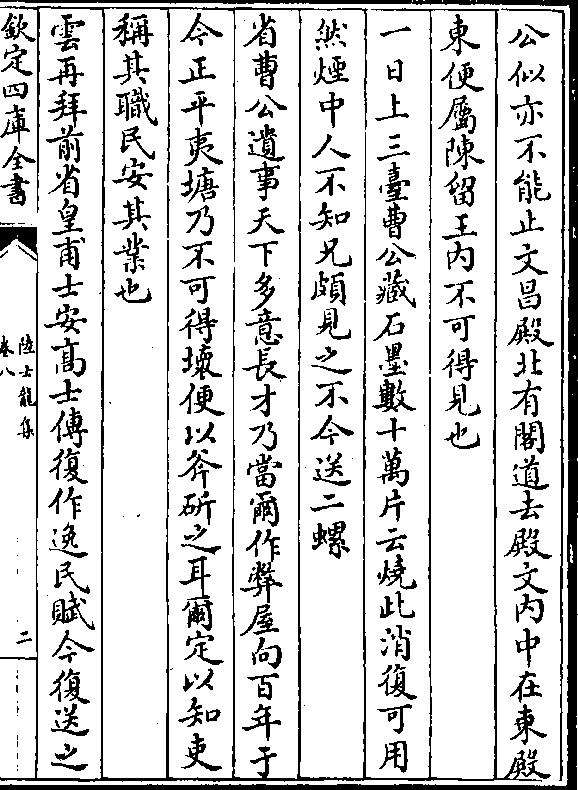 公似亦不能止文昌殿北有閣道去殿文內中在東殿
東便屬陳留王內不可得見也
一日上三臺曹公藏石墨數十萬片云燒此消復可用
然煙中人不知兄頗見之不今送二螺
省曹公遺事天下多意長才乃當爾作弊屋向百年于
今正平夷塘乃不可得壞便以斧斫之耳爾定以知吏
稱其職民安其業也
雲再拜前省皇甫士安高士傳復作逸民賦今復送之
欽定四庫全書
陸士龍集
卷八
二